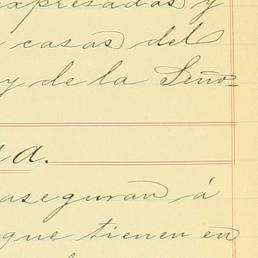 expresadas y
casas del
y de la Seño-
a.
aseguran á
que tienen en